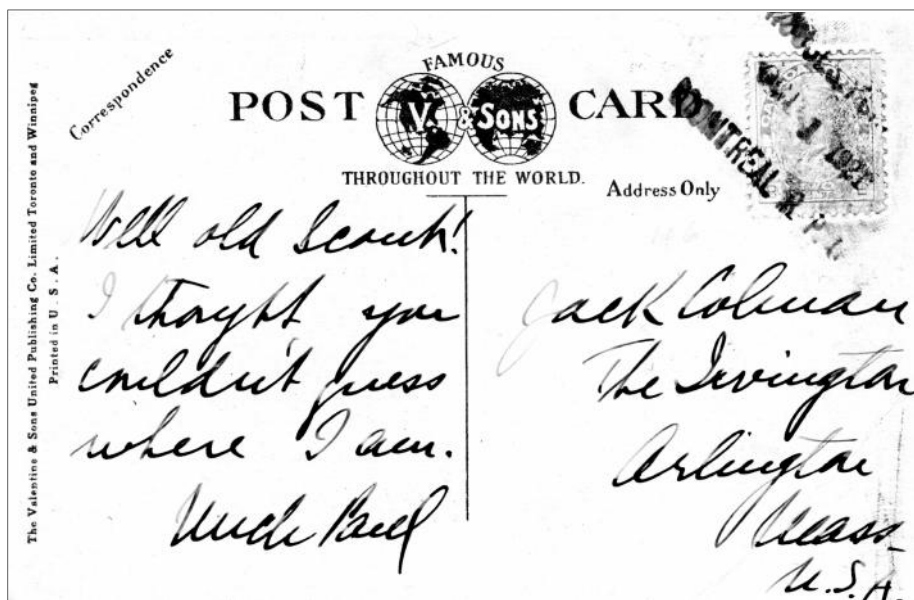 The Valentine & Sons United Publishing Co. Limited Toronto and Winnipeg
Printed in U.S.A.
Correspondence
FAMOUS
POST CARD
V. & SONS
THROUGHOUT THE WORLD.
Address Only
MONTREAL
Well old Scout!
I thought you
couldn't guess
where I am.
Uncle Paul
Jack Colman
The Irvington
Arlington
Mass.
U.S.A.